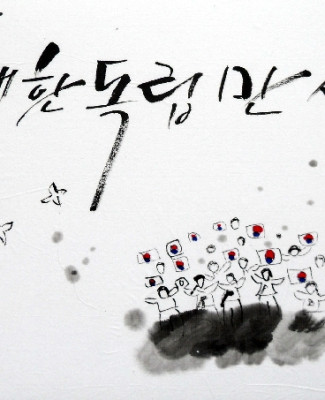 한독립만